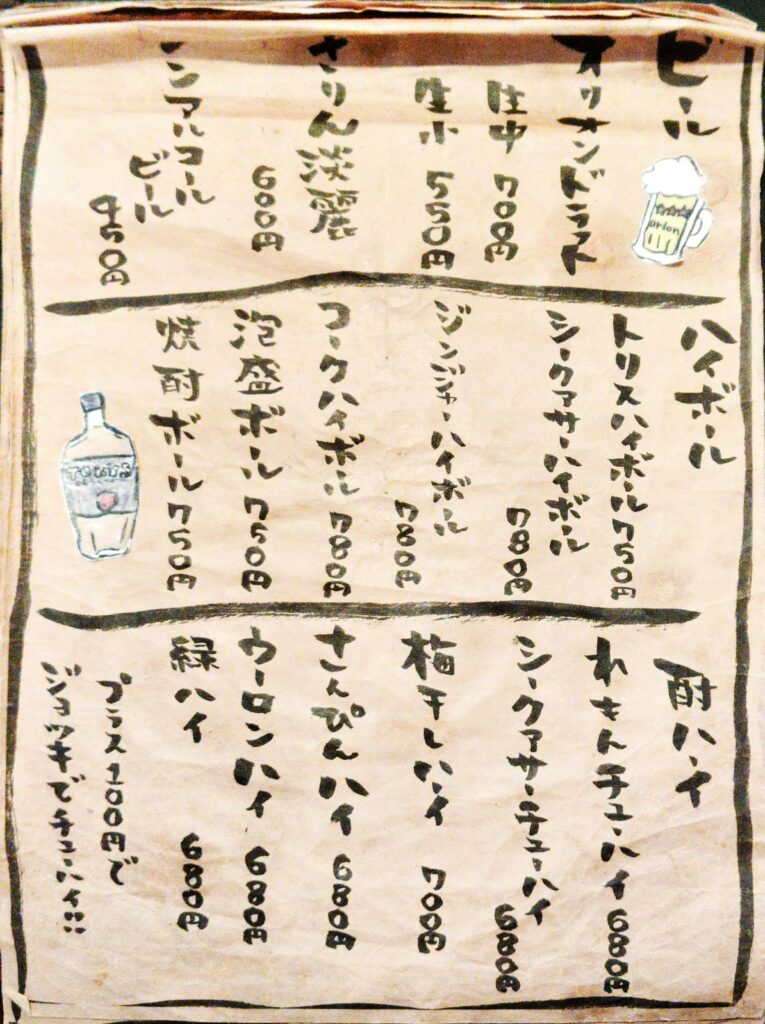 ビール
orion
オリオンドラフト
生中 700円
生小 550円
きりん淡麗
600円
ノンアルコール
ビール
450円
ハイボール
トリスハイボール 750円
シークァサーハイボール
780円
ジンジャーハイボール
780円
コークハイボール 780円
泡盛ボール 750円
焼酎ボール 750円
酎ハイ
れもんチューハイ 680円
シークァサーチューハイ
680円
梅干しハイ 700円
さんぴんハイ 680円
ウーロンハイ 680円
緑ハイ 680円
プラス100円で
ジョッキでチューハイ!!!